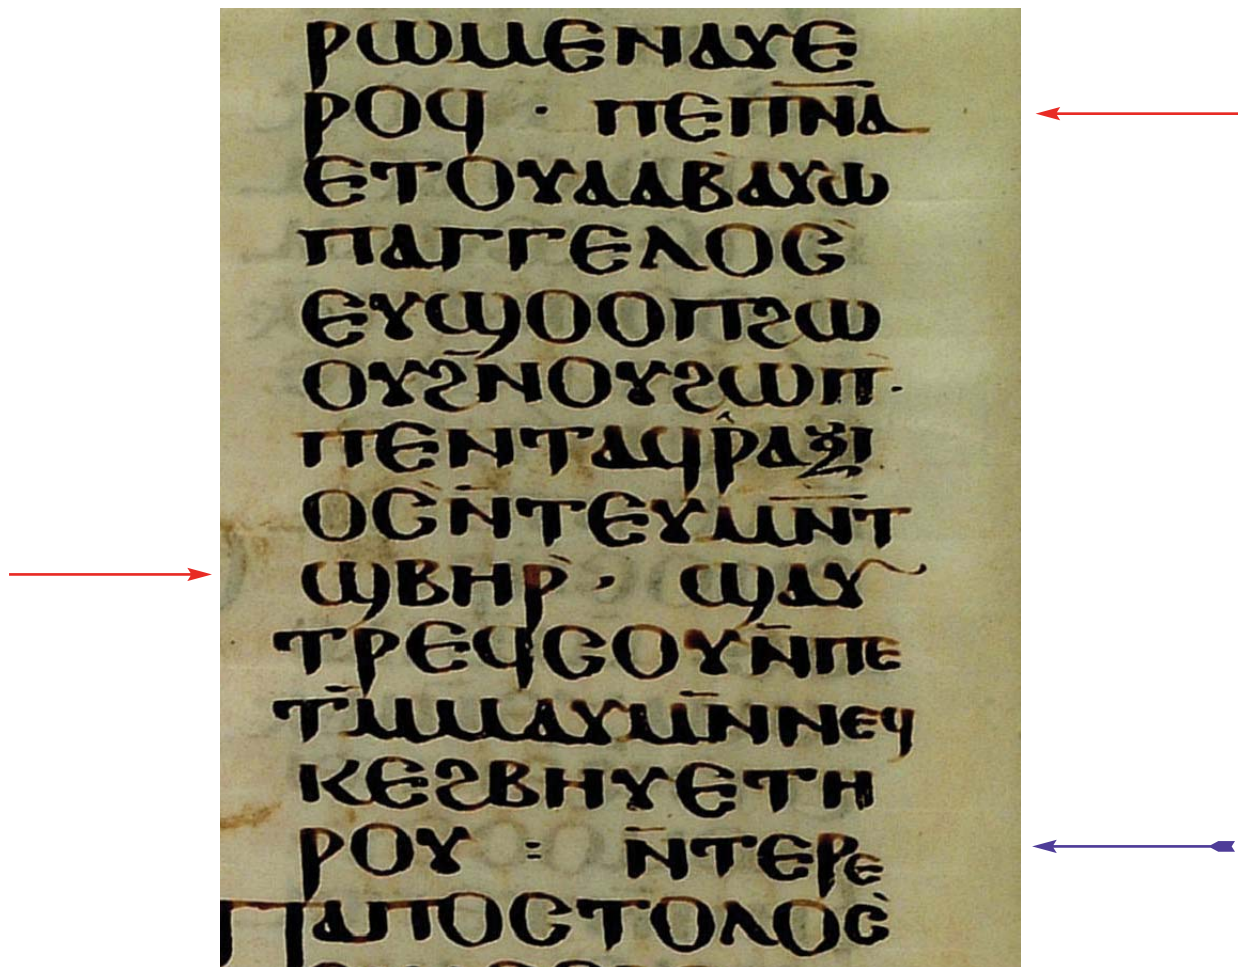 ⲣⲱⲙⲉⲛⲁⲩⲉ
ⲣⲟϥ · ⲡⲉⲡⲛ̅ⲁ̅
ⲉⲧⲟⲩⲁⲁⲃ̀ⲁⲩⲱ
ⲡⲁⲅⲅⲉⲗⲟⲥ̀
ⲉⲩϣⲟⲟⲡϩⲱ
ⲟⲩϩⲛ̅ⲟⲩϩⲱⲡ̀·
ⲡⲉⲛⲧⲁϥⲣ̂ⲁⲝⲓ
ⲟⲥ̀ⲛ̅ⲧⲉⲩⲙⲛ̅ⲧ
ϣⲃⲏⲣ̀ · ϣⲁⲩ
ⲧⲣⲉϥⲥⲟⲩⲛ̅ⲡⲉ
ⲧⲙ̅ⲙⲁⲩⲙⲛ̅ⲛⲉϥ
ⲕⲉϩⲃⲏⲩⲉⲧⲏ
ⲣⲟⲩ : ⲛ̅ⲧⲉⲣⲉ
ⲡⲁⲡⲟⲥⲧⲟⲗⲟⲥ̀